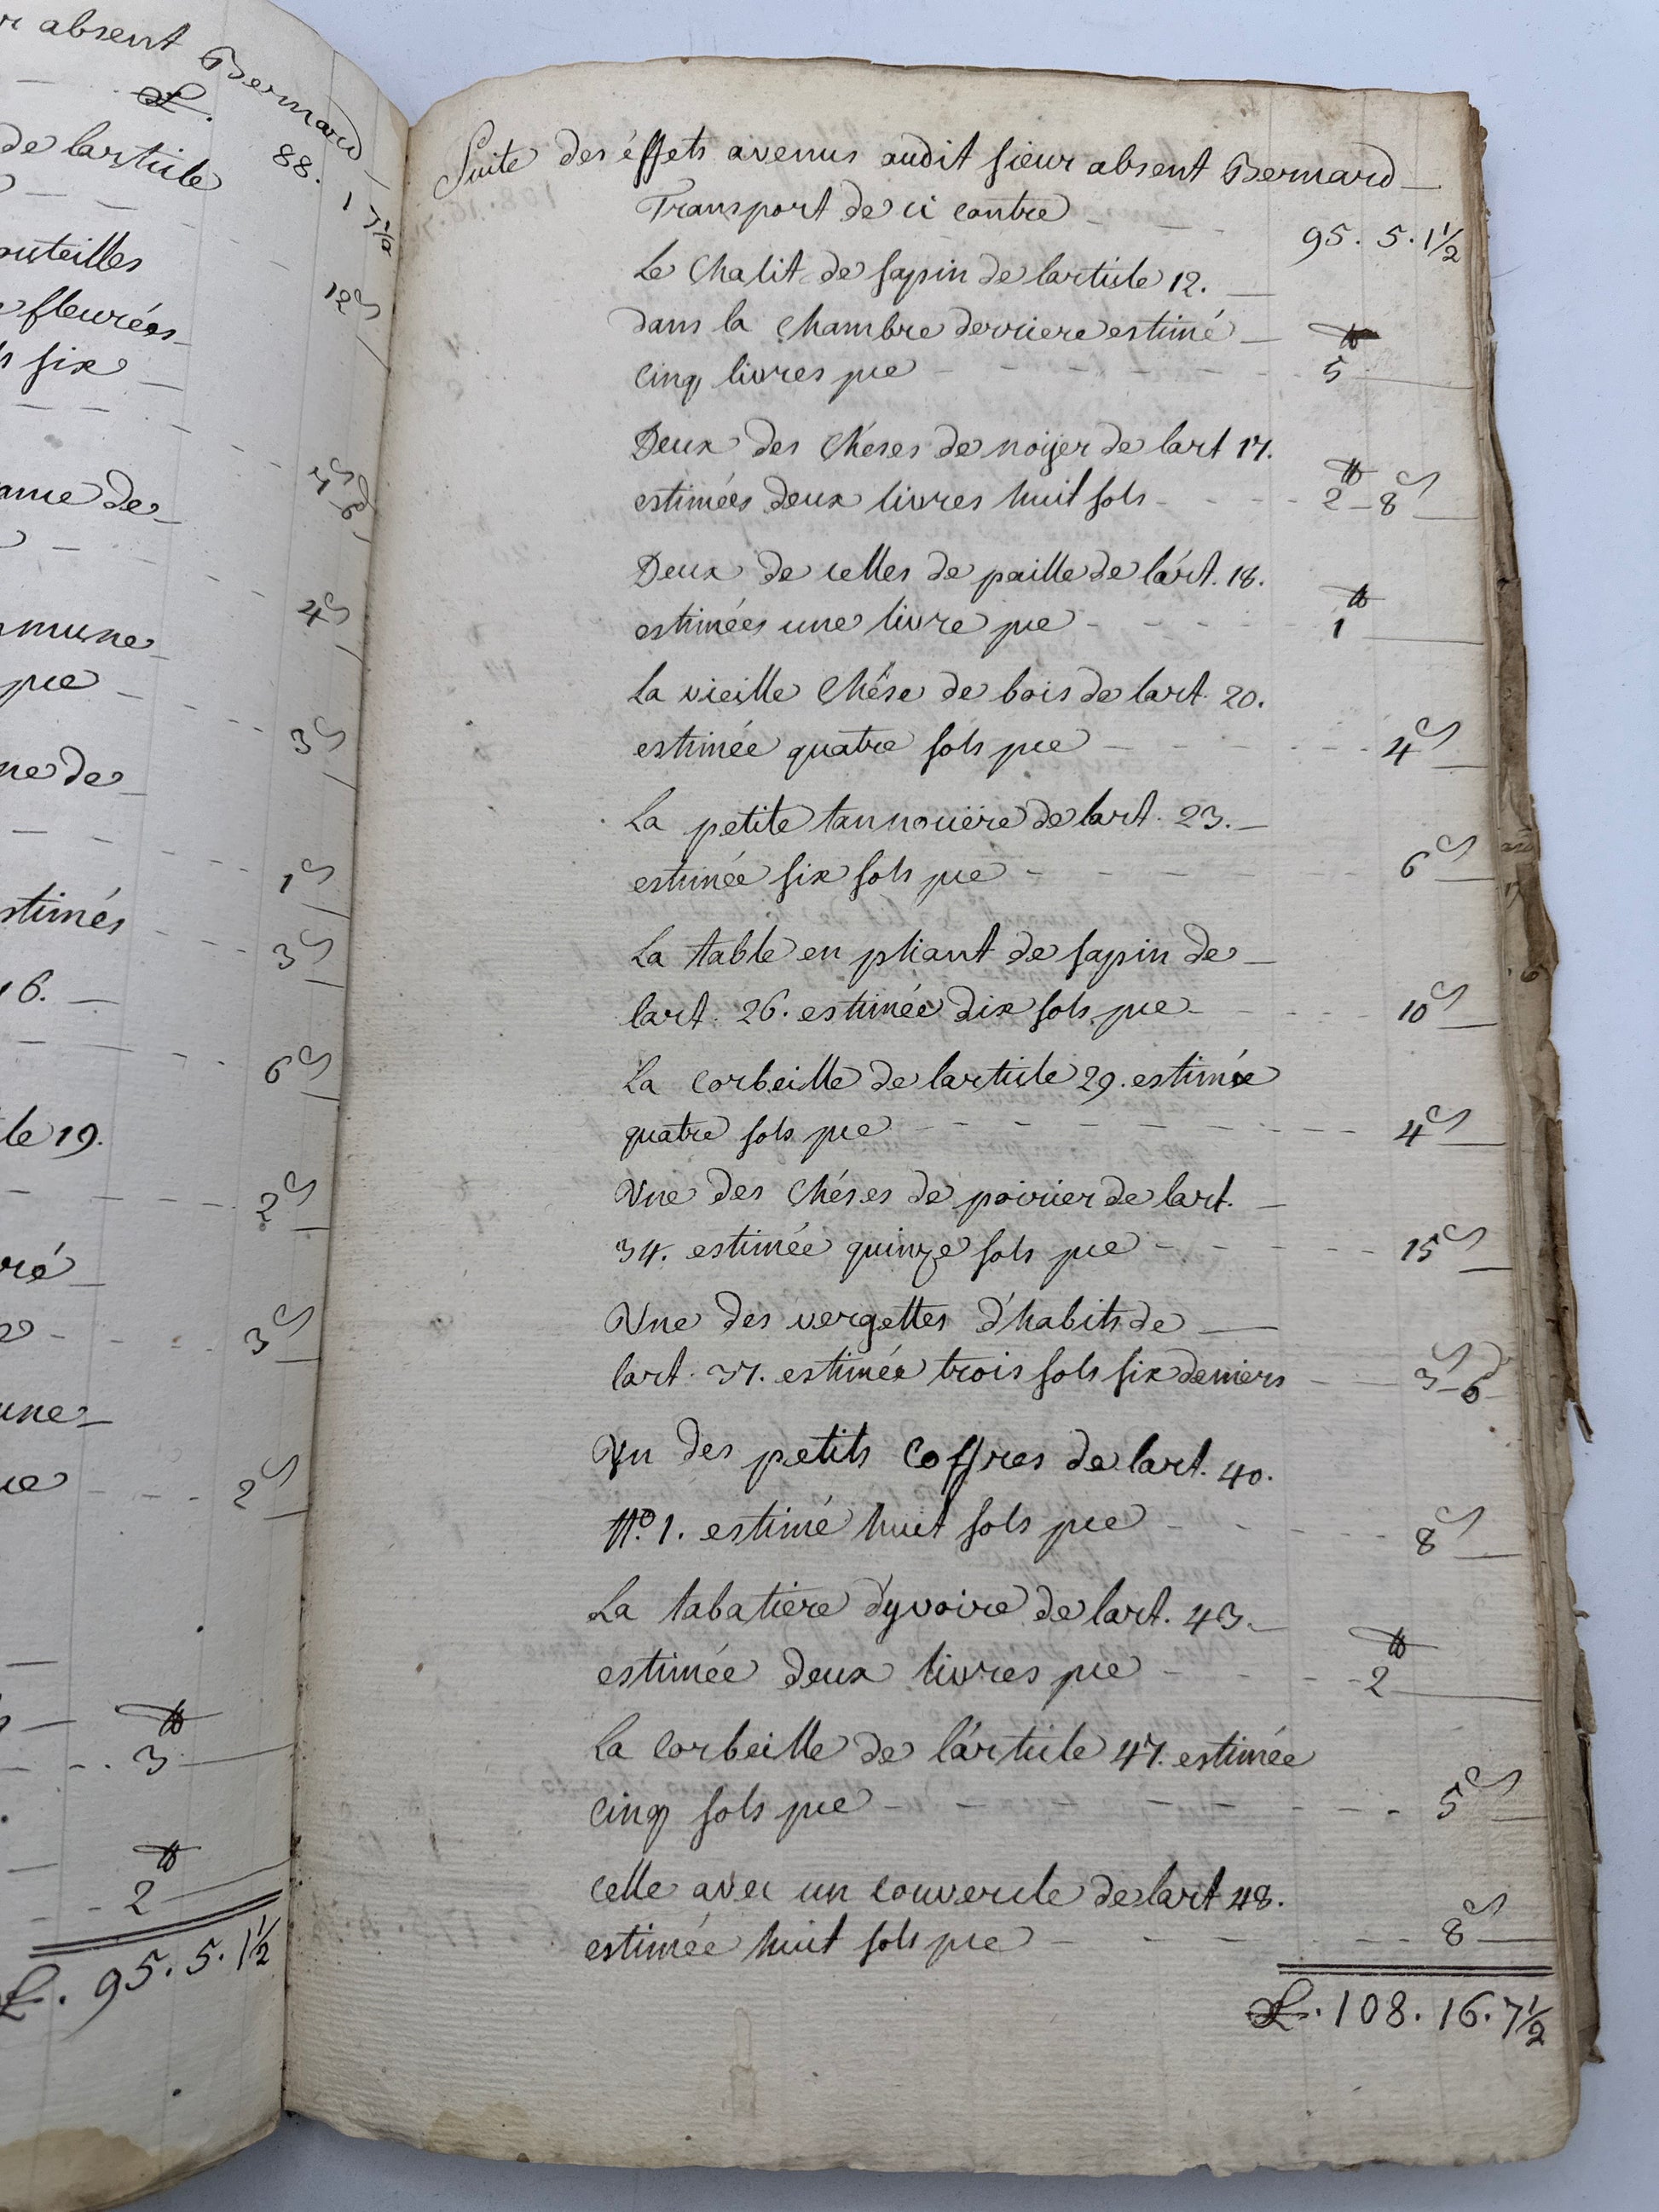 r absent Bernard
L. 88. 1 7/2
de lartiule
outeilles
fleurées
12 s
s six
7 s 6 d
ame de
4 s
mune
pce
3 s
ne de
1 s
stimés
3 s
16.
6 s
le 19.
2 s
ré
3 s
une
2 s
₶
3
₶
2
L. 95. 5. 1½
Suite des éffets avenus audit sieur absent Bernard
Transport de ci contre 95. 5. 1½
Le Chalit de sapin de lartiule 12.
dans la Chambre derriere estimé
cinq livres pce ₶ 5
Deux des Chéses de noijer de lart 17.
estimées deux livres huit sols ₶ 2 - 8 s
Deux de celles de paille de lárt. 18.
estimées une livre pce ₶ 1
La vieille Chése de bois de lart. 20.
estimée quatre sols pce 4 s
La petite tannouëre de lart. 23.
estimée six sols pce 6 s
La table en pliant de sapin de
lart. 26. estimée dix sols pce 10 s
La Corbeille de lartiule 29. estimée
quatre sols pce 4 s
Une des Chéses de poirier de lart.
34. estimée quinze sols pce 15 s
Une des vergettes d'habits de
lart. 37. estimée trois sols six deniers 3 s 6 d
Un des petits Coffres de lart. 40.
No. 1. estimé huit sols pce 8 s
La tabatiere d'yvoire de lart. 43.
estimée deux livres pce ₶ 2
La Corbeille de lártiule 47. estimée
cinq sols pce 5 s
Celle avec un couvercle de lart 48.
estimée huit sols pce 8 s
L. 108. 16. 7½